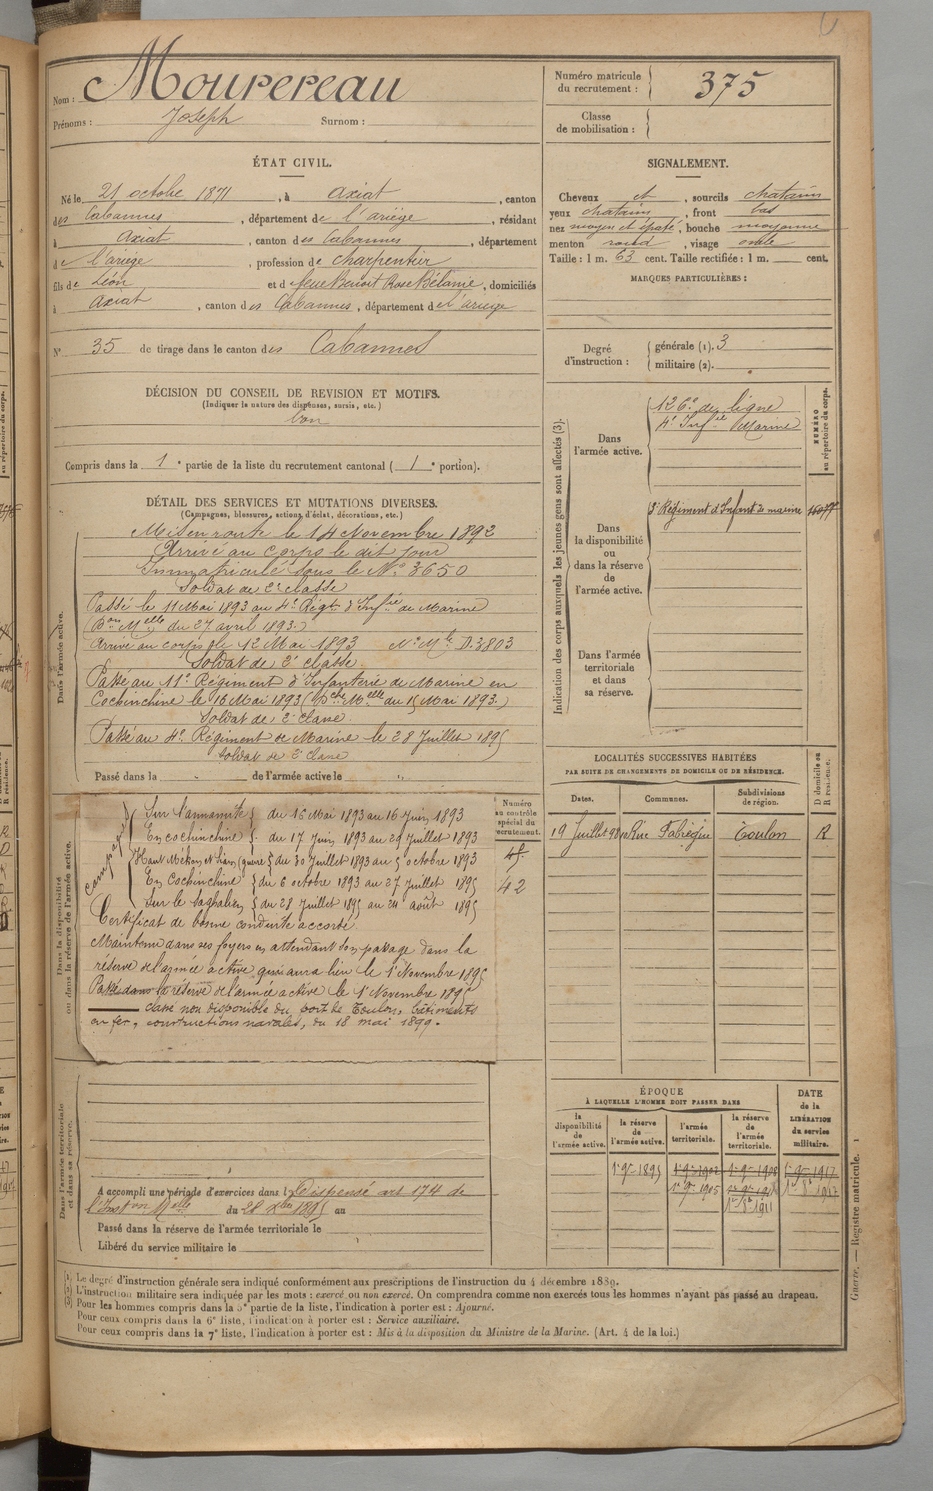 Nom : Mourereau
Prénoms : Joseph Surnom :
Numéro matricule du recrutement : 375
Classe de mobilisation :
ÉTAT CIVIL.
Né le 21 octobre 1871, à Axiat, canton
des Cabannes, département de l'ariège, résidant
à Axiat, canton des Cabannes, département
de l'ariège, profession de charpentier
fils de Léon et de feue Benoit Rose Mélanie, domiciliés
à Axiat, canton des Cabannes, département de l'ariège
N° 35 de tirage dans le canton des Cabannes
SIGNALEMENT.
Cheveux et, sourcils chatains
yeux chatains, front bas
nez moyen et épaté, bouche moyenne
menton rond, visage ovale
Taille : 1 m. 63 cent. Taille rectifiée : 1 m. cent.
MARQUES PARTICULIÈRES :
Degré d'instruction : générale (1). 3
militaire (2).
DÉCISION DU CONSEIL DE REVISION ET MOTIFS.
(Indiquer la nature des dispenses, sursis, etc.)
bon
Compris dans la 1e partie de la liste du recrutement cantonal (1e portion).
DÉTAIL DES SERVICES ET MUTATIONS DIVERSES.
(Campagnes, blessures, actions, d'éclat, décorations, etc.)
Dans l'armée active.
Mis en route le 14 Novembre 1892
Arrivé au corps le dit jour
Immatriculé sous le N° 3650
Soldat de 2e classe
Passé le 11 Mai 1893 au 4e Régt d'Infie de Marine
(Don Melle du 27 avril 1893.)
Arrivé au corps le 12 Mai 1893 N° Mle D.3803
Soldat de 2e classe.
Passé au 11e Régiment d'Infanterie de Marine en
Cochinchine le 16 Mai 1893 (Dche Melle du 15 Mai 1893.)
Soldat de 2e classe.
Passé au 4e Régiment de Marine le 28 Juillet 1895
Soldat de 2e classe
Passé dans la de l'armée active le
Dans la disponibilité ou dans la réserve de l'armée active.
Campagnes
Sur l'annamite du 16 Mai 1893 au 16 Juin 1893
En cochinchine du 17 Juin 1893 au 29 Juillet 1893
Haut Mékong et Siam (guerre) du 30 Juillet 1893 au 5 octobre 1893
En Cochinchine du 6 octobre 1893 au 27 juillet 1895
Sur le du 28 Juillet 1895 au 24 août 1895
Certificat de bonne conduite accordé
Maintenu dans ses foyers en attendant son passage dans la
réserve de l'armée active qui aura lieu le 1e Novembre 1895
Passé dans la réserve de l'armée active le 1e Novembre 1895
classé non disponible du port de Toulon, bâtiments
en fer, constructions navales, du 18 mai 1899.
Numéro au contrôle spécial du recrutement.
42
Dans l'armée territoriale et dans sa réserve.
A accompli une période d'exercices dans l Dispensé art 174 de
l'Inston Melle du 28 Xbre 1895 au
Passé dans la réserve de l'armée territoriale le
Libéré du service militaire le
Indication des corps auxquels les jeunes gens sont affectés (3).
NUMÉRO au répertoire du corps.
Dans l'armée active.
126e de ligne
4e Infie Marine
Dans la disponibilité ou dans la réserve de l'armée active.
Régiment d'Infant de marine
Dans l'armée territoriale et dans sa réserve.
LOCALITÉS SUCCESSIVES HABITÉES
PAR SUITE DE CHANGEMENTS DE DOMICILE OU DE RÉSIDENCE.
Dates. Communes. Subdivisions de région. D domicile ou R résidence.
19 Juillet 98 Toulon R
ÉPOQUE
À LAQUELLE L'HOMME DOIT PASSER DANS
la disponibilité de l'armée active. la réserve de l'armée active. l'armée territoriale. la réserve de l'armée territoriale. DATE de la LIBÉRATION du service militaire.
1e 9re 1895 1e 9re 1902 1e 9re 1908
1e 9re 1905
(1) Le degré d'instruction générale sera indiqué conformément aux prescriptions de l'instruction du 4 décembre 1889.
(2) L'instruction militaire sera indiquée par les mots : exercé ou non exercé. On comprendra comme non exercés tous les hommes n'ayant pas passé au drapeau.
(3) Pour les hommes compris dans la 5e partie de la liste, l'indication à porter est : Ajourné.
Pour ceux compris dans la 6e liste, l'indication à porter est : Service auxiliaire.
Pour ceux compris dans la 7e liste, l'indication à porter est : Mis à la disposition du Ministre de la Marine. (Art. 4 de la loi.)
Guerre. — Registre matricule. 1